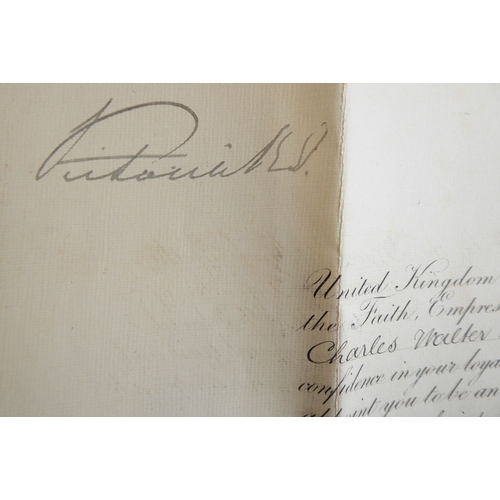 Victoria R I
United Kingdom
the Faith, Empres
Charles Walter
confidence in your loya
appoint you to be an